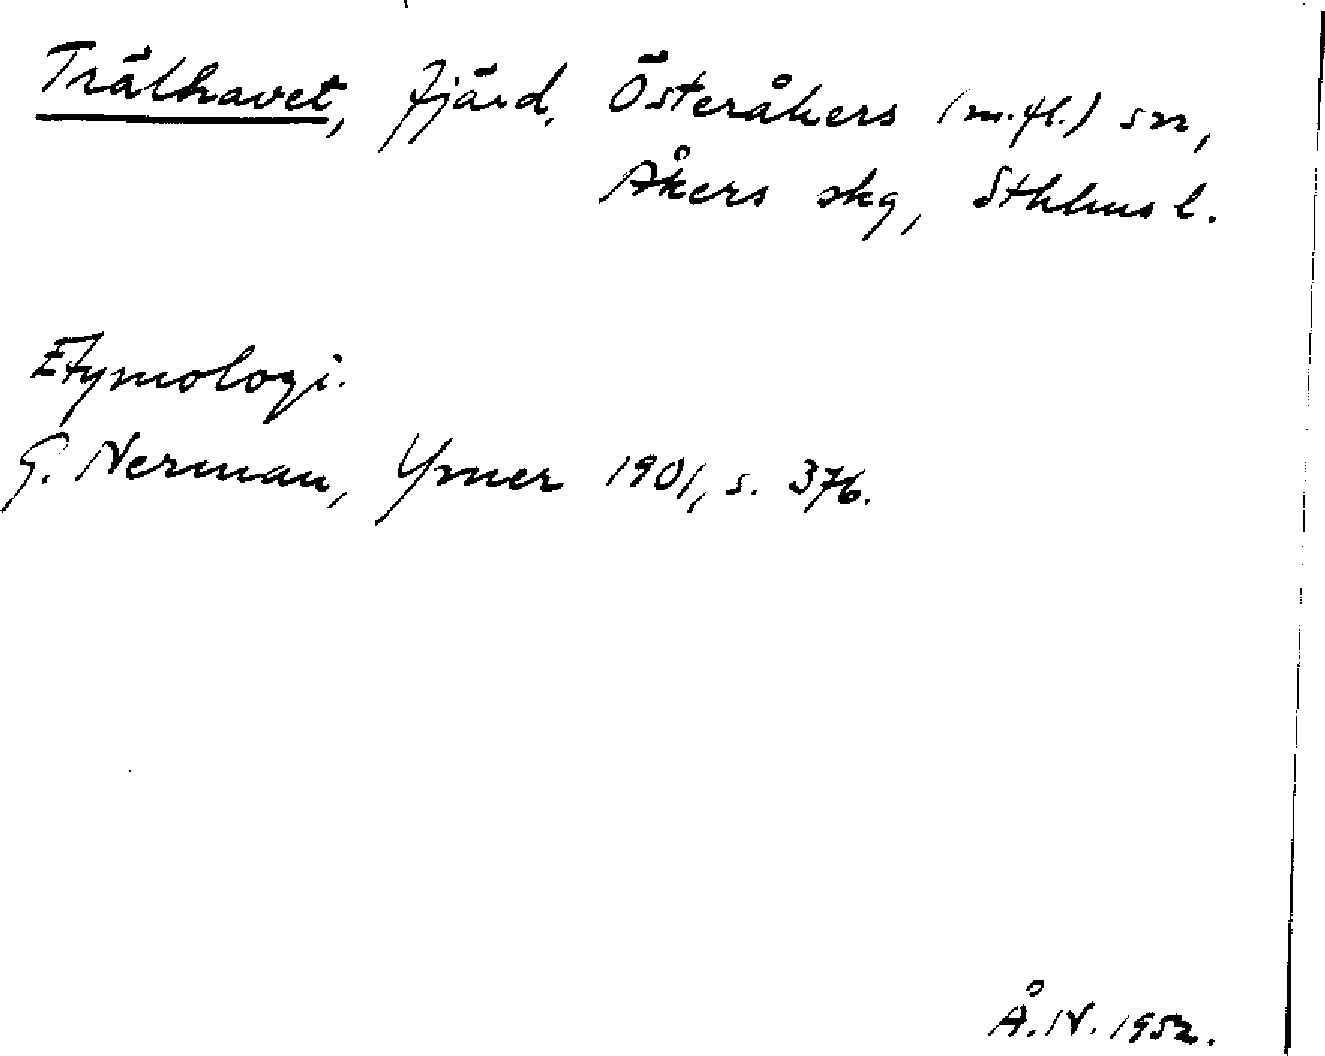 Trälhavet, fjärd, Österåkers (m.fl.) sn,
Åkers skg, Sthlms l.
Etymologi.
G. Nerman, Ymer 1901, s. 376.
Å. N. 1952.